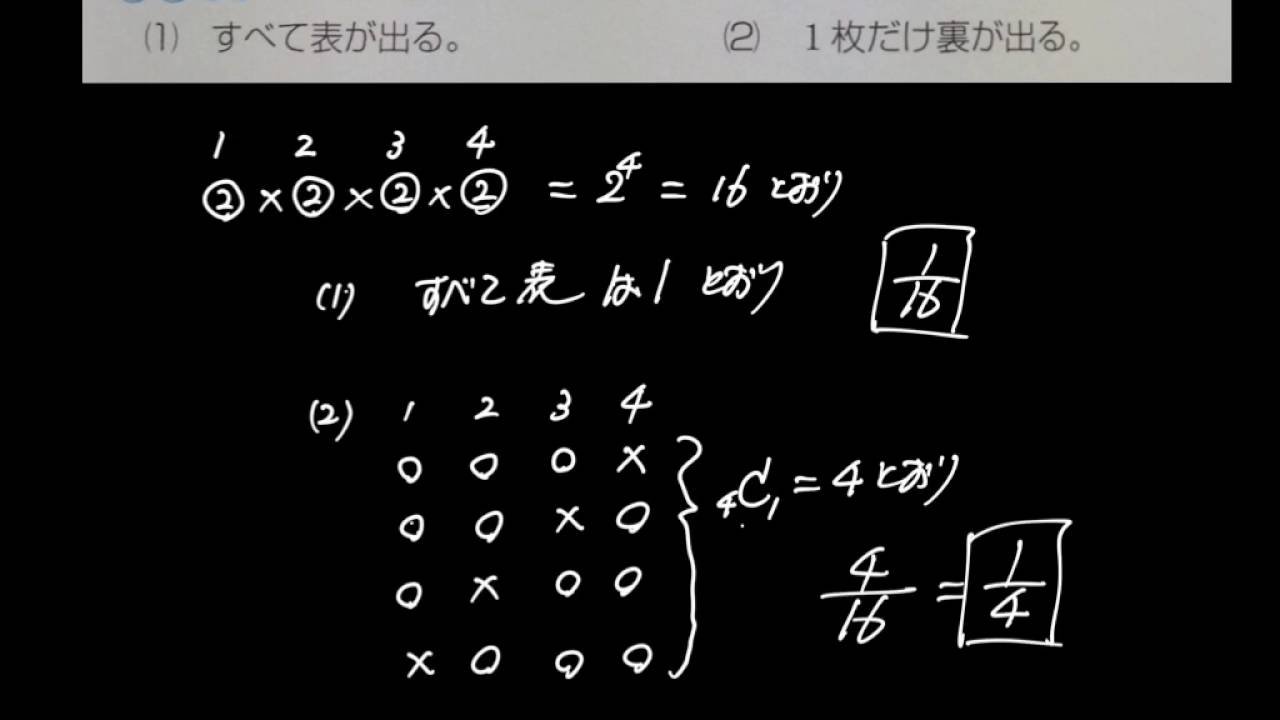 (1) すべて表が出る。
(2) 1枚だけ裏が出る。
1 2 3 4
② × ② × ② × ② = 2⁴ = 16 とおり
(1) すべて表は1とおり 1/16
(2) 1 2 3 4
○ ○ ○ ×
○ ○ × ○
₄C₁ = 4とおり
○ × ○ ○
4/16 = 1/4
× ○ ○ ○